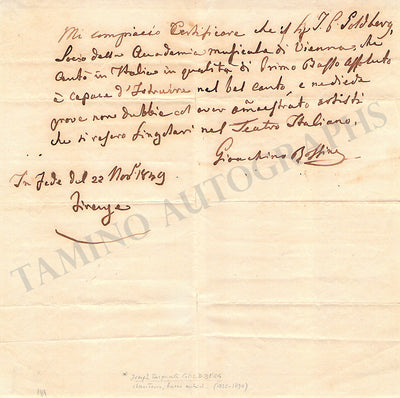 Mi compiaccio Certificare che il Sig. J. P. Goldberg,
Socio della Accademia musicale di Vienna, che
Cantò in Italia in qualità di Primo Basso Assoluto
è capace d'Istruire nel bel Canto, e ne diede
prove non dubbie col aver ammaestrato artisti
che si resero singolari nel Teatro Italiano.
Gioachino Rossini
In fede del 22 Nov. 1849
Firenze
TAMINO AUTOGRAPHS